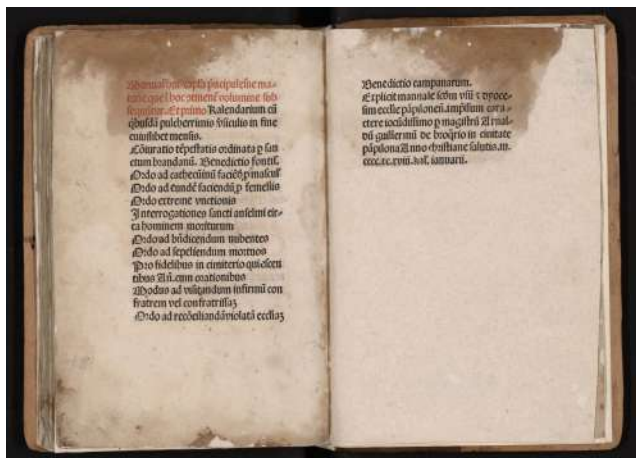 Manualis hoc capla pricipulesue ma-
terie que i hoc ottinent volumine sub
sequitur. Et primo Kalendarium cū
qbusdā pulcherrimis v̄siculis in fine
cuiuslibet mensis.
Cōiuratio tēpestatis ordinata p san
ctum brandanū. Benedictio fontis.
Ordo ad cathecuinū faciēdū p mascul
Ordo ad eundē faciendū p femellis
Ordo extreme vnctionis
Interrogationes sancti anselmi cir-
ca hominem moriturum
Ordo ad bn̄dicendum nubentes
Ordo ad sepeliendum mortuos
Pro fidelibus in cimiterio quiescen
tibus Añ. cum orationibus
Modus ad visitandum infirmū con
fratrem vel confratrissaʒ
Ordo ad recōciliandā violatā eccliaʒ
Benedictio campanarum.
Explicit manuale scdm vsū ⁊ dyoce-
sim ecclie pāpilonen̄. impssum cara-
ctere iocūdissimo p magistrū Arnal-
dū guillermū de broq̄rio in ciuitate
pāpilona Anno christiane salutis. m.
cccc. xc. xviii. kal. ianuarii.